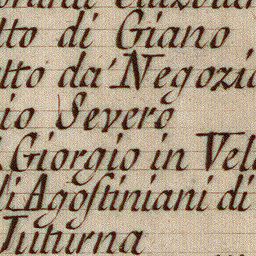 tto di Giano
etto da' Negozia
io Severo
Giorgio in Vel
li Agostiniani di
Juturna